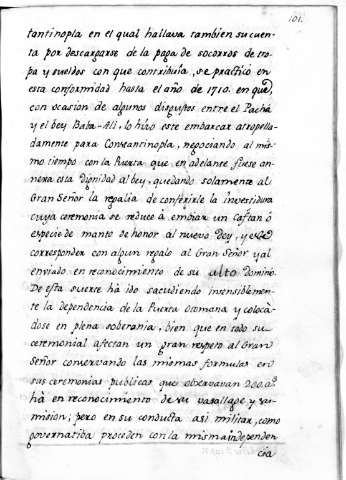 101.
tantinopla en el qual hallava tambien su cuen-
ta por descargarse de la paga de socorros de tro-
pa y sueldos con que contribuía, se practicó en
esta conformidad hasta el año de 1710. en que
con ocasion de algunos disgustos entre el Pachá
y el bey Baba-Ali, lo hizo este embarcar atropella-
damente para Constantinopla, negociando al mis-
mo tiempo con la Puerta que en adelante fuese an-
nexa esta Dignidad al bey, quedando solamente al
Gran Señor la regalia de conferirle la investidura
cuya ceremonia se reduce à embiar un Caftan ó
especie de manto de honor al nuevo Dey, y este
corresponder con algun regalo al Gran Señor y al
enviado en reconocimiento de su alto dominio.
De esta suerte há ido sacudiendo insensiblemen-
te la dependencia de la Puerta otomana y colocá-
dose en plena soberania, bien que en todo su
ceremonial afectan un gran respeto al Gran
Señor conservando las mismas formulas en
sus ceremonias publicas que observavan 200 a.s
há en reconocimiento de su vasallage y su-
mision; pero en su conducta asi militar, como
governativa proceden con la misma independen
cia